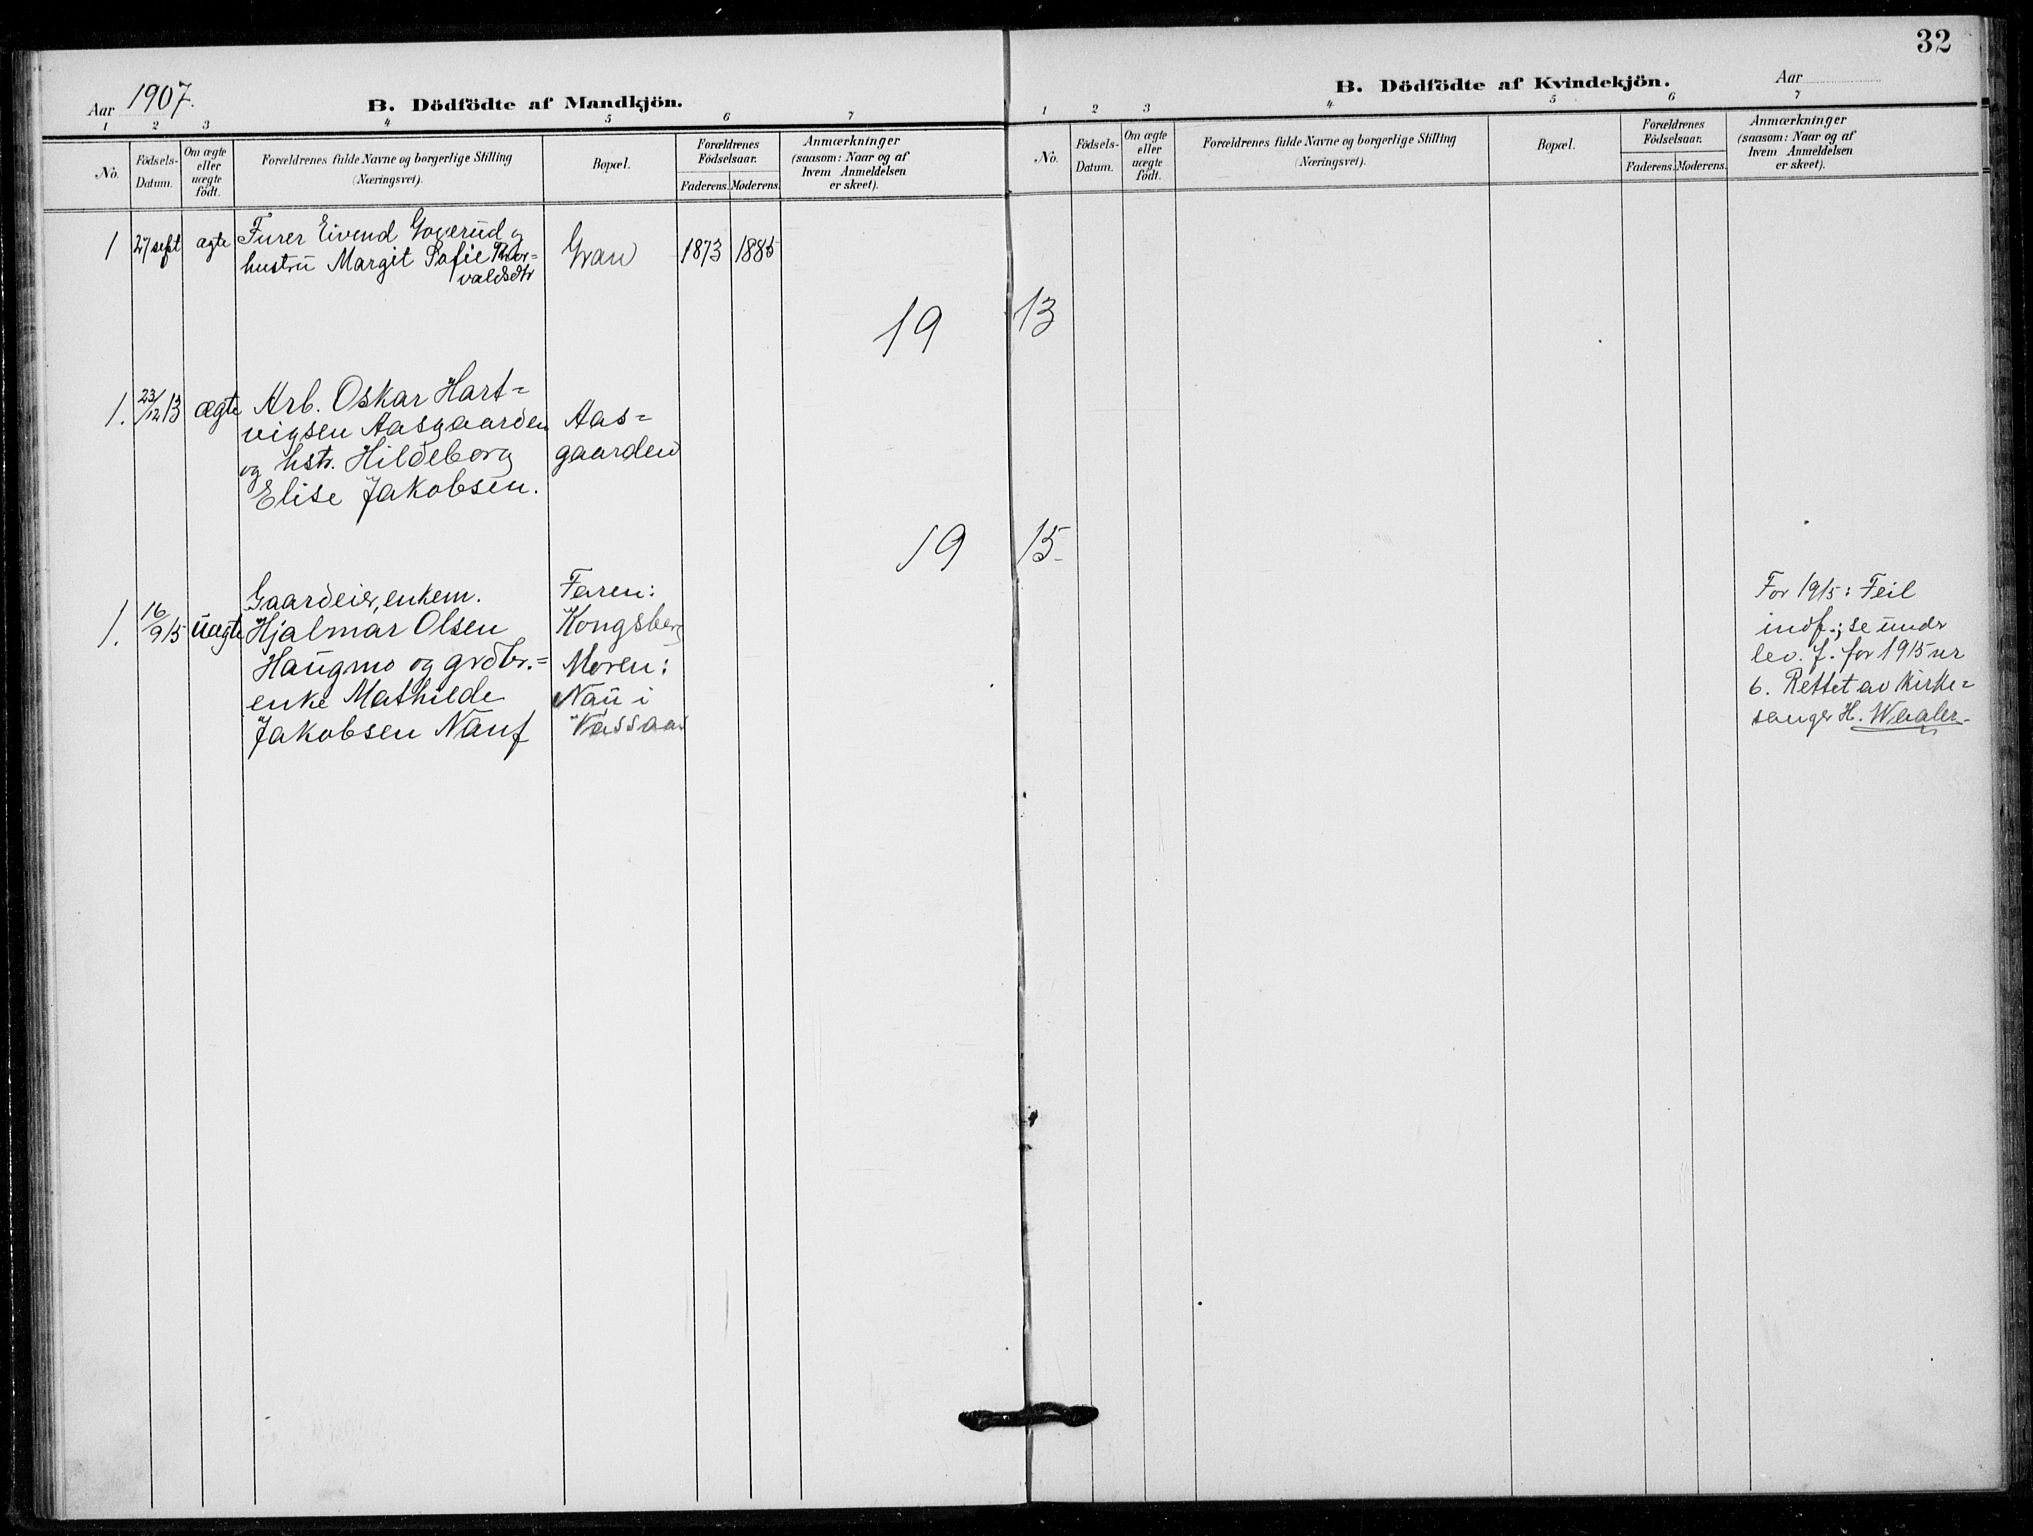 Aar 1907.
B. Dödfödte af Mandkjön.
1 2 3 4 5 6 7
No.
Födsels-Datum.
Om ægte eller uægte födt.
Forældrenes fulde Navne og borgerlige Stilling
(Næringsvei).
Bopæl.
Forældrenes Födselsaar.
Faderens. Moderens.
Anmærkninger
(saasom: Naar og af
hvem Anmeldelsen
er skeet).
1 27 sept ægte Furer Eivend Goverud og Gran 1873 1885
hustru Margit Sofie Thor-
valdsdtr
19 13
1. 23/12 13 ægte Arb. Oskar Hart-
vigsen Aasgaarden Aas-
og hstr. Hildeborg gaarden
Elise Jakobsen.
19 15
1. 16/9 15 uægte Gaardeier, enkem. Faren:
Hjalmar Olsen Kongsberg
Haugmo og grdbr.- Moren:
enke Mathilde Nau i
Jakobsen Nauf Vassaas
32
B. Dödfödte af Kvindekjön.
Aar
1 2 3 4 5 6 7
No.
Födsels-Datum.
Om ægte eller uægte födt.
Forældrenes fulde Navne og borgerlige Stilling
(Næringsvei).
Bopæl.
Forældrenes Födselsaar.
Faderens. Moderens.
Anmærkninger
(saasom: Naar og af
hvem Anmeldelsen
er skeet).
For 1915: Feil
indf.; se under
lev. f. for 1915 nr
6. Rettet av kirke-
sanger H. Waaler